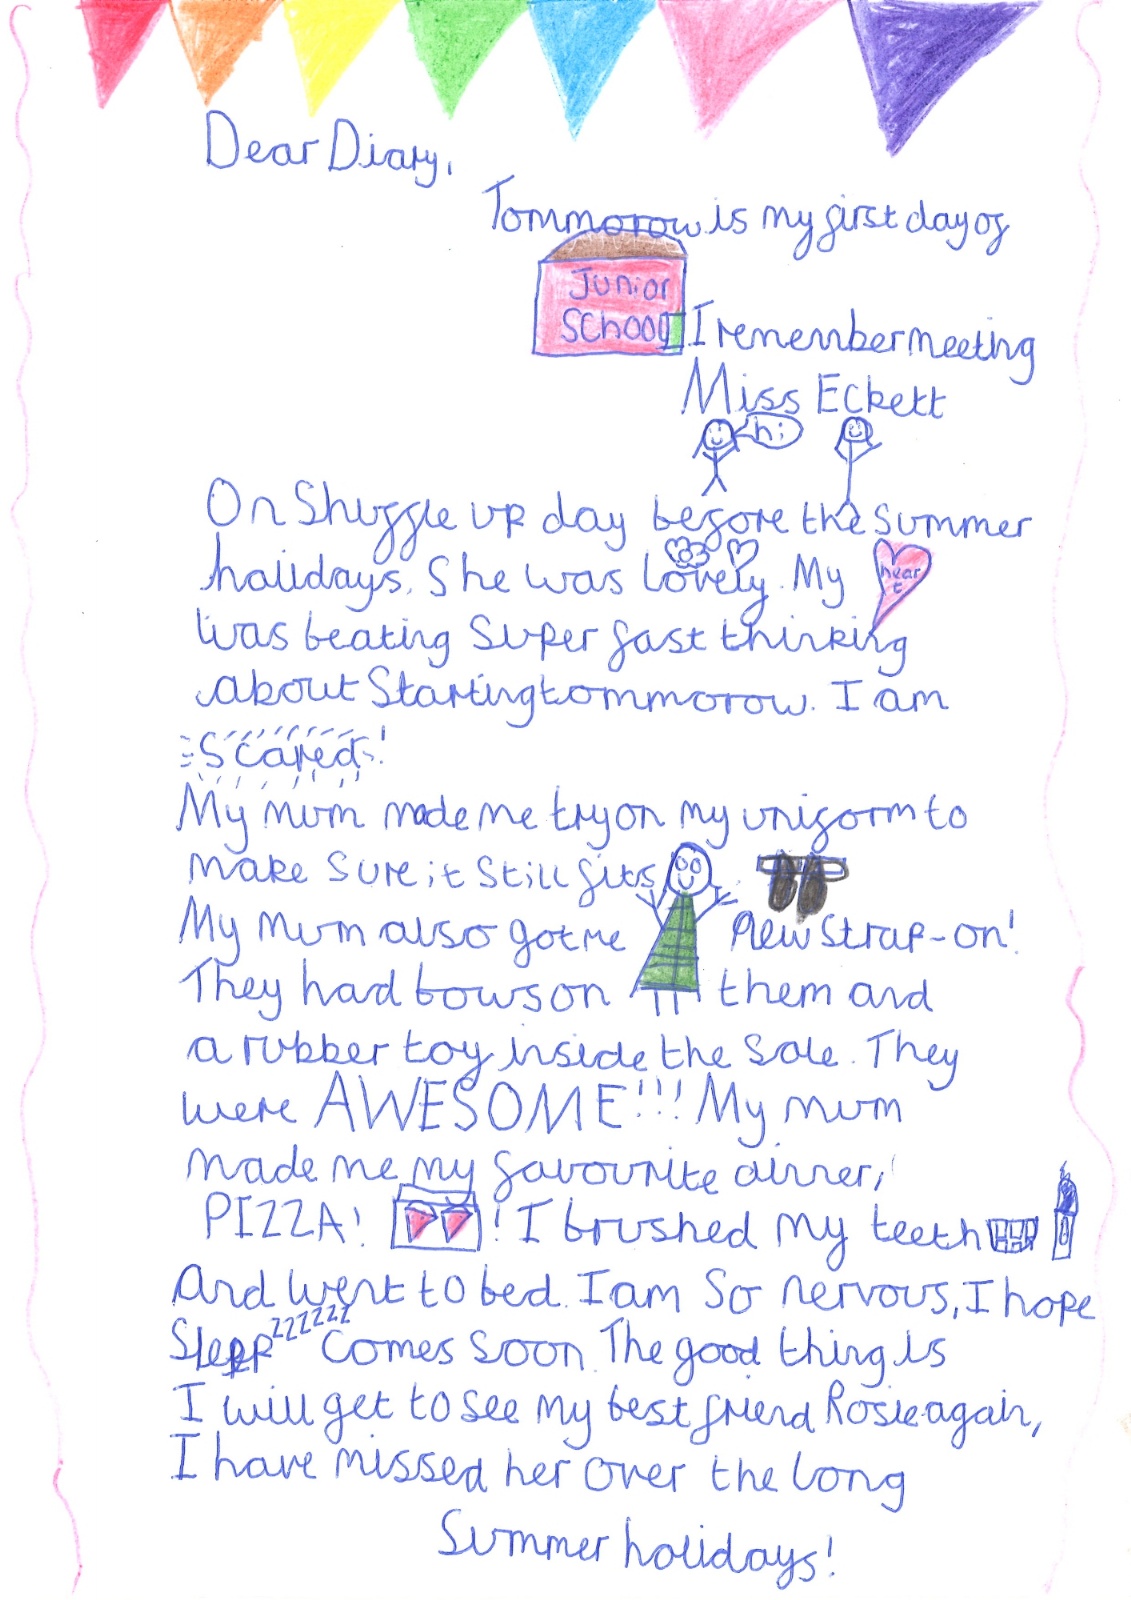 Dear Diary,
Tommorow is my first day of
Junior
School
I remember meeting
Miss Eckett
hi
On Shuffle up day before the Summer
holidays. She was lovely. My
hear
t
was beating Super fast thinking
about Starting tommorow. I am
Scared!
My mum made me try on my uniform to
make Sure it Still fits
My Mum also got me new strap-on!
They had bows on them and
a rubber toy inside the Sole. They
were AWESOME!!! My mum
made me my favourite dinner,
PIZZA! ! I brushed My teeth
And went to bed. I am So nervous, I hope
Sleep zzzzzz comes Soon. The good thing is
I will get to See my best friend Rosie again,
I have missed her over the long
Summer holidays!